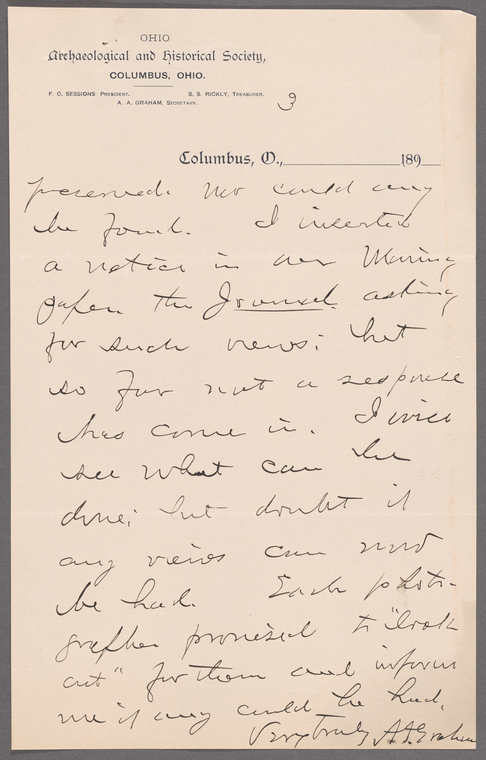 OHIO
Archaeological and Historical Society,
COLUMBUS, OHIO.
F. C. SESSIONS PRESIDENT. S. S. RICKLY, TREASURER.
A. A. GRAHAM, SECRETARY.
3
Columbus, O., 189
preserved. nor could any
be found. I inserted
a notice in our Morning
paper the Journal asking
for such views; but
so far not a response
has come in. I will
see what can be
done; but doubt if
any views can now
be had. Each photo-
grapher promised to "look
out" for them and inform
me if any could be had.
Very truly A. A. Graham